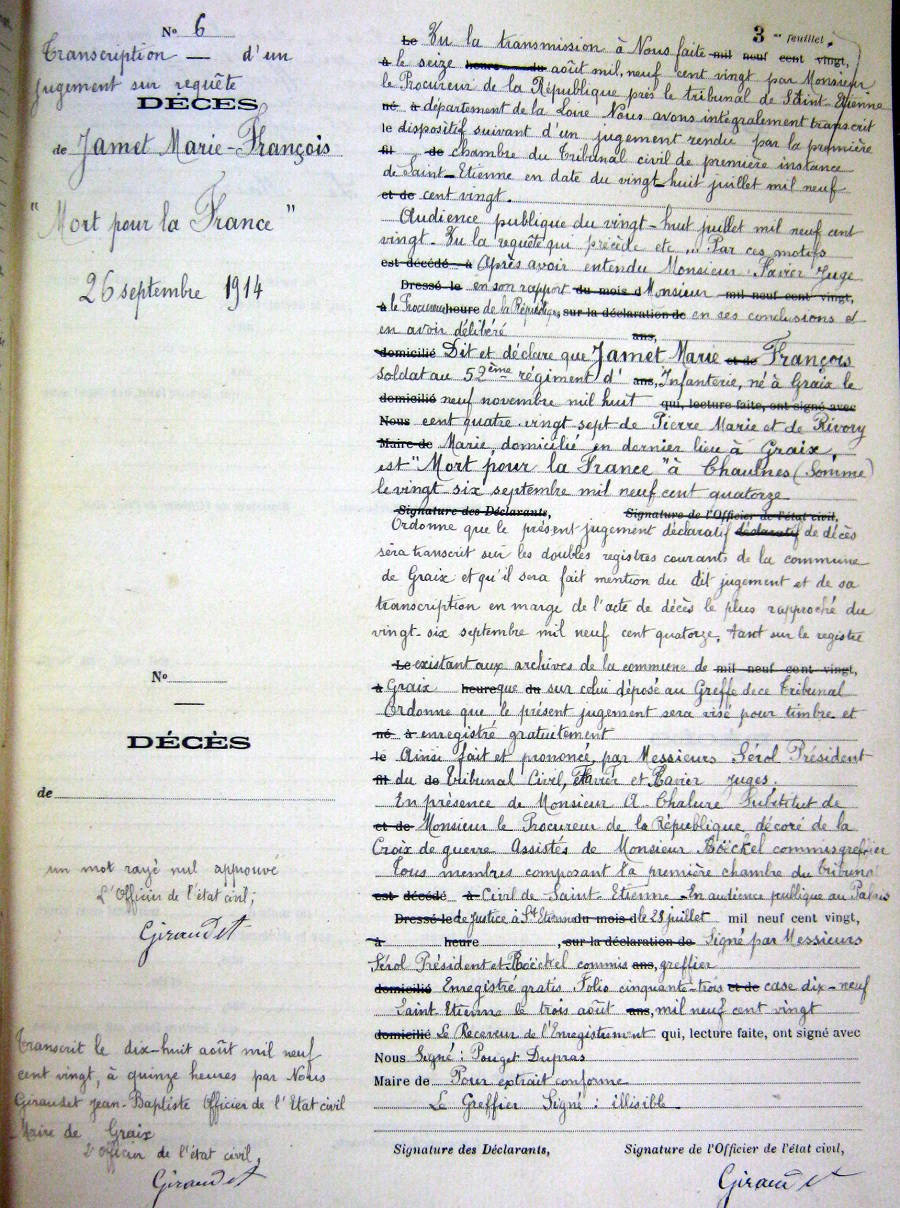 Nº 6
Transcription — d'un
jugement sur requête
DÉCÈS
de Jamet Marie-François
"Mort pour la France"
26 septembre 1914
Nº
DÉCÈS
de
un mot rayé nul approuvé
L'Officier de l'état civil,
Giraudet
Transcrit le dix-huit août mil neuf
cent vingt, à quinze heures par Nous
Giraudet Jean-Baptiste Officier de l'Etat civil
Maire de Graix
L'Officier de l'état civil,
Giraudet
3me feuillet.
Le Vu la transmission à Nous faite mil neuf cent vingt,
à le seize heures du août mil neuf cent vingt par Monsieur
le Procureur de la République près le tribunal de Saint-Etienne
né à département de la Loire Nous avons intégralement transcrit
le dispositif suivant d'un jugement rendu par la première
fil de chambre du Tribunal civil de première instance
de Saint-Etienne en date du vingt-huit juillet mil neuf
et de cent vingt.
Audience publique du vingt-huit juillet mil neuf cent
vingt. Vu la requête qui précède etc... Par ces motifs
est décédé à Après avoir entendu Monsieur Favier Juge
Dressé le en son rapport du mois d Monsieur mil neuf cent vingt,
à le Procureur heure de la République, sur la déclaration de en ses conclusions et
en avoir délibéré ans,
domicilié Dit et déclare que Jamet Marie et de François
soldat au 52ème régiment d' ans, Infanterie, né à Graix le
domicilié neuf novembre mil huit qui, lecture faite, ont signé avec
Nous cent quatre-vingt-sept de Pierre Marie et de Rivory
Maire de Marie, domicilié en dernier lieu à Graix,
est "Mort pour la France" à Chaulnes (Somme)
le vingt six septembre mil neuf cent quatorze
Signature des Déclarants, Signature de l'Officier de l'état civil,
Ordonne que le présent jugement déclaratif déclaratif de décès
sera transcrit sur les doubles registres courants de la commune
de Graix et qu'il sera fait mention du dit jugement et de sa
transcription en marge de l'acte de décès le plus rapproché du
vingt-six septembre mil neuf cent quatorze, tant sur le registre
Le existant aux archives de la commune de mil neuf cent vingt,
à Graix heure que du sur celui déposé au Greffe de ce Tribunal
Ordonne que le présent jugement sera visé pour timbre et
né à enregistré gratuitement
le Ainsi fait et prononcé, par Messieurs Sérol Président
fil du de Tribunal Civil, Favier et Xavier juges.
En présence de Monsieur A. Chalure Substitut de
et de Monsieur le Procureur de la République, décoré de la
Croix de guerre Assistés de Monsieur Röëckel commis greffier
Tous membres composant la première chambre du Tribunal
est décédé à Civil de Saint-Etienne En audience publique au Palais
Dressé le de Justice à St Etienne du mois d le 28 juillet mil neuf cent vingt,
à heure , sur la déclaration de Signé par Messieurs
Sérol Président et Röëckel commis ans, greffier
domicilié Enregistré gratis Folio cinquante-trois et de case dix-neuf
Saint Etienne le trois août ans, mil neuf cent vingt
domicilié Le Receveur de l'Enregistrement qui, lecture faite, ont signé avec
Nous Signé : Pouget Dupras
Maire de Pour extrait conforme
Le Greffier Signé : illisible
Signature des Déclarants, Signature de l'Officier de l'état civil,
Giraudet